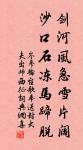 劍河風急雪片闊
沙口石凍馬蹄脫
岑參輪臺歌奉送封大
夫出師西征詞典網書